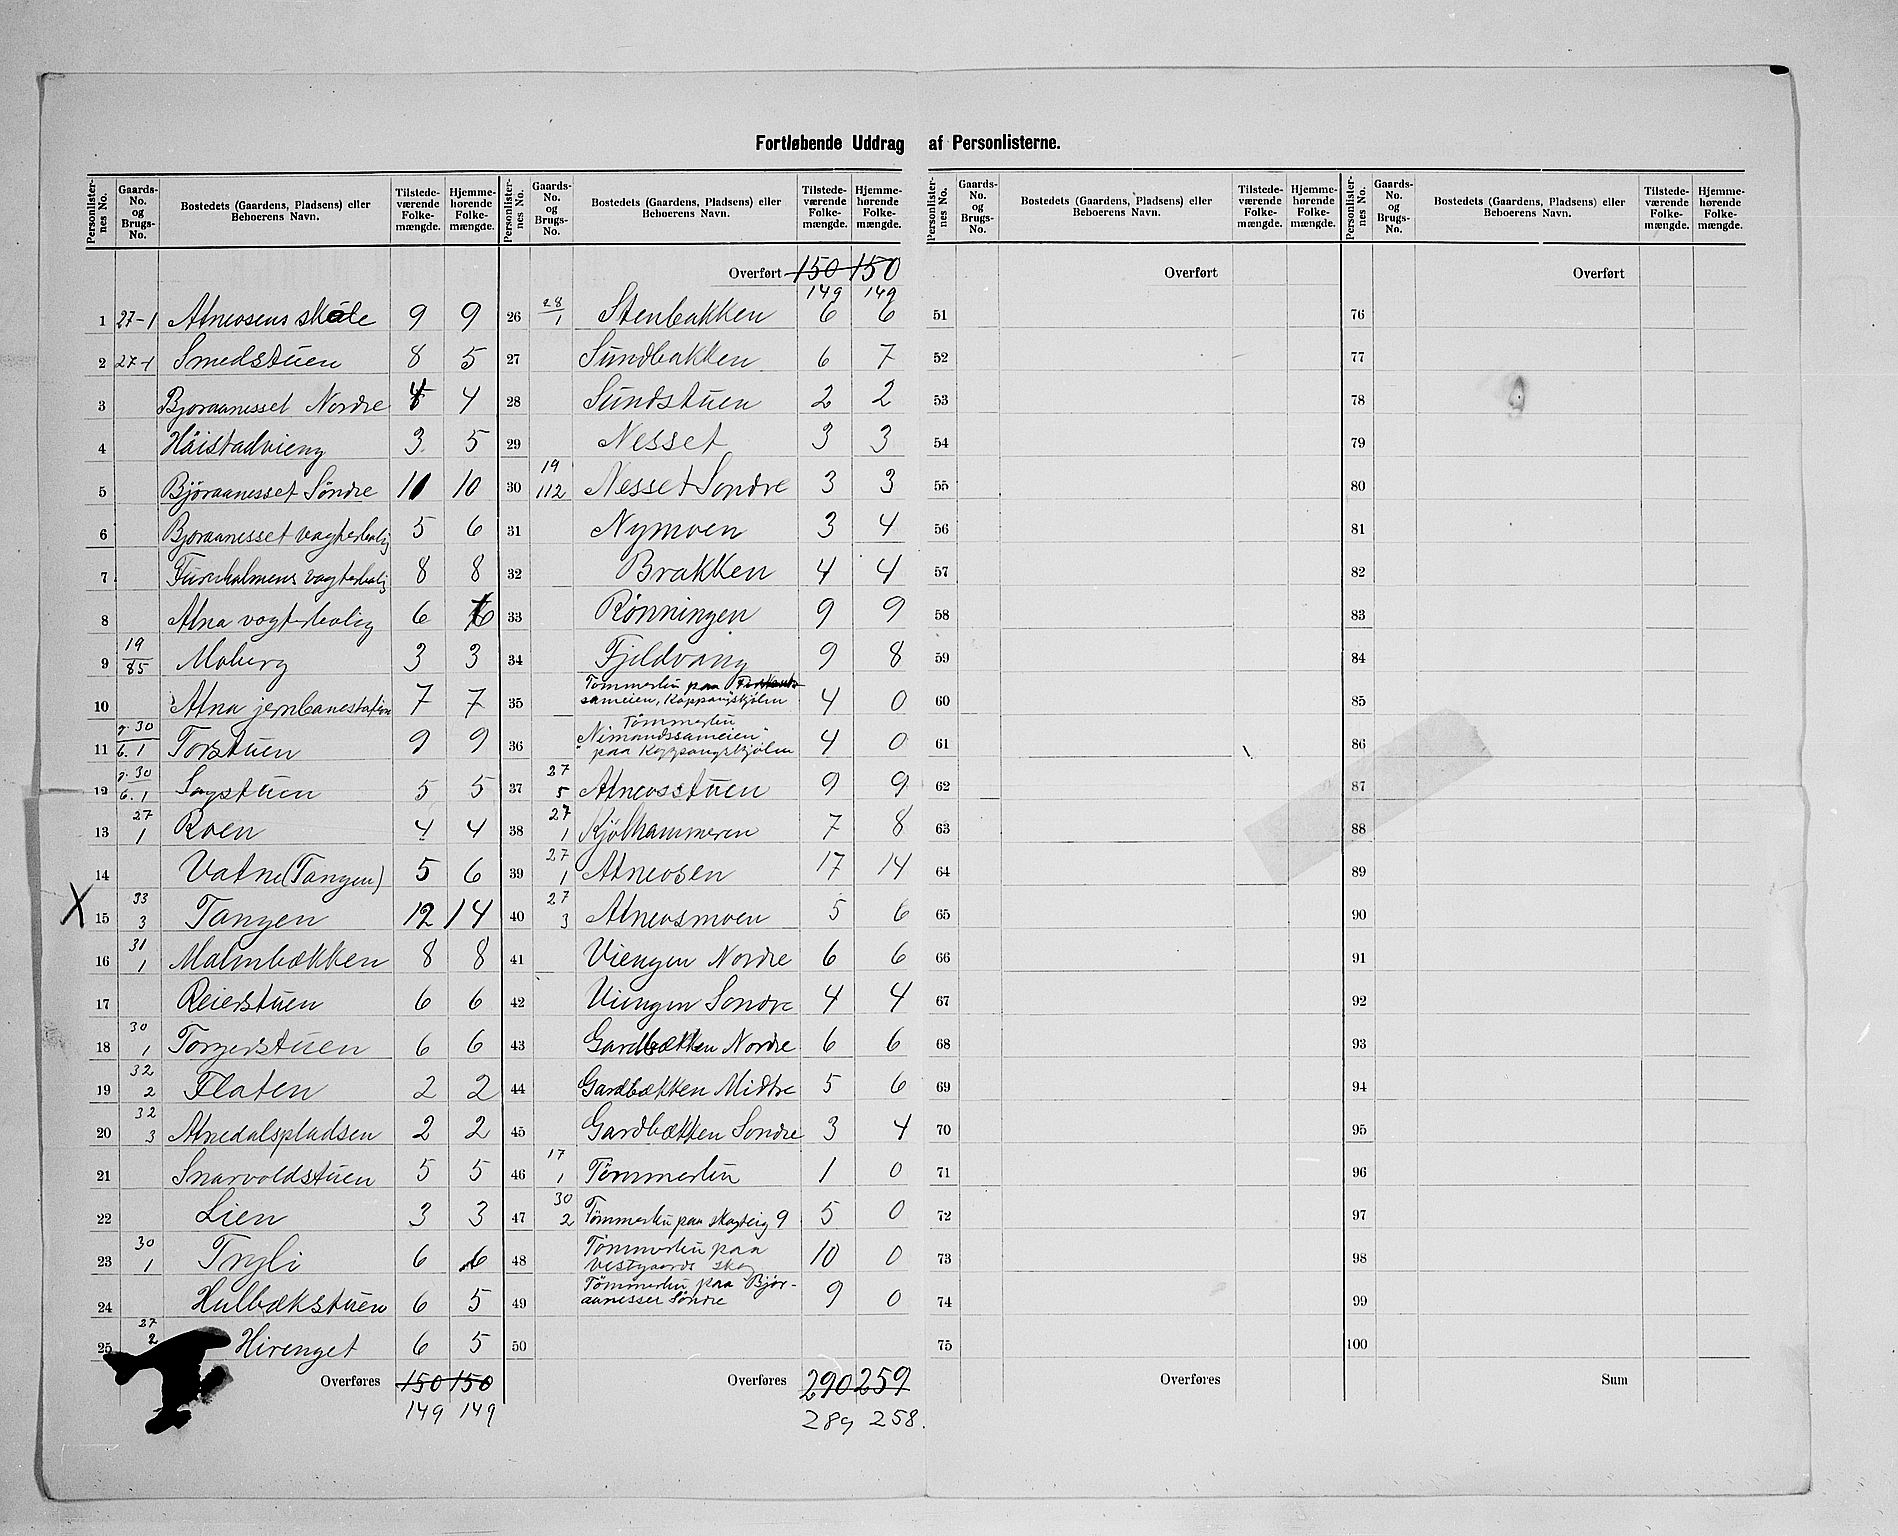 Fortløbende Uddrag af Personlisterne.
Personlisternes No. | Gaards-No. og Brugs-No. | Bostedets (Gaardens, Pladsens) eller Beboerens Navn. | Tilstedeværende Folkemængde. | Hjemmehørende Folkemængde.
1 27-1 Atneosens skole 9 9
2 27-1 Smedstuen 8 5
3 Bjoraanesset Nordre 4 4
4 Håistadvieng 3 5
5 Björaanesset Söndre 11 10
6 Bjoraanesset vagterbolig 5 6
7 Furuholmens vagterbolig 8 8
8 Atna vogterbolig 6 6
9 19/85 Moberg 3 3
10 Atna jernbanestation 7 7
11 g. 30 b. 1 Torstuen 9 9
12 g. 30 b. 1 Sagstuen 5 5
13 27/1 Roen 4 4
14 Vatne (Tangen) 5 6
X 15 33/3 Tangen 12 14
16 31/1 Malmbækken 8 8
17 Reierstuen 6 6
18 30/1 Torgerstuen 6 6
19 32/2 Flaten 2 2
20 32/3 Atnedalspladsen 2 2
21 Snarvoldstuen 5 5
22 Lien 3 3
23 30/1 Tryli 6 6
24 Hulbækstuen 6 5
25 27/2 Hirenget 6 5
Overføres 150 150
149 149
Personlisternes No. | Gaards-No. og Brugs-No. | Bostedets (Gaardens, Pladsens) eller Beboerens Navn. | Tilstedeværende Folkemængde. | Hjemmehørende Folkemængde.
Overført 150 150
149 149
26 28/1 Stenbakken 6 6
27 Sundbakken 6 7
28 Sundstuen 2 2
29 Nesset 3 3
30 19/112 Nesset Sondre 3 3
31 Nymoen 3 4
32 Brakken 4 4
33 Rönningen 9 9
34 Fjeldvang 9 8
35 Tömmerhu paa
sameien, Koppangskjölen 4 0
36 Tömmerhu
"Nimandssameien"
paa Koppangskjölen 4 0
37 27/5 Atneosstuen 9 9
38 27/1 Kjölhammeren 7 8
39 27/1 Atneosen 17 14
40 27/3 Atneosmoen 5 6
41 Viengen Nordre 6 6
42 Viengen Sondre 4 4
43 Gardbækken Nordre 6 6
44 Gardbækken Midtre 5 6
45 Gardbækken Sondre 3 4
46 17/1 Tömmerhu 1 0
47 30/2 Tömmerhu paa skogteig 9 5 0
48 Tömmerhu paa
Vestgaards skog 10 0
49 Tömmerhu paa Bjør-
aanesset Söndre 9 0
50
Overføres 290 259
289 258.
Personlisternes No. | Gaards-No. og Brugs-No. | Bostedets (Gaardens, Pladsens) eller Beboerens Navn. | Tilstedeværende Folkemængde. | Hjemmehørende Folkemængde.
Overført
51
52
53
54
55
56
57
58
59
60
61
62
63
64
65
66
67
68
69
70
71
72
73
74
75
Overføres
Personlisternes No. | Gaards-No. og Brugs-No. | Bostedets (Gaardens, Pladsens) eller Beboerens Navn. | Tilstedeværende Folkemængde. | Hjemmehørende Folkemængde.
Overført
76
77
78
79
80
81
82
83
84
85
86
87
88
89
90
91
92
93
94
95
96
97
98
99
100
Sum